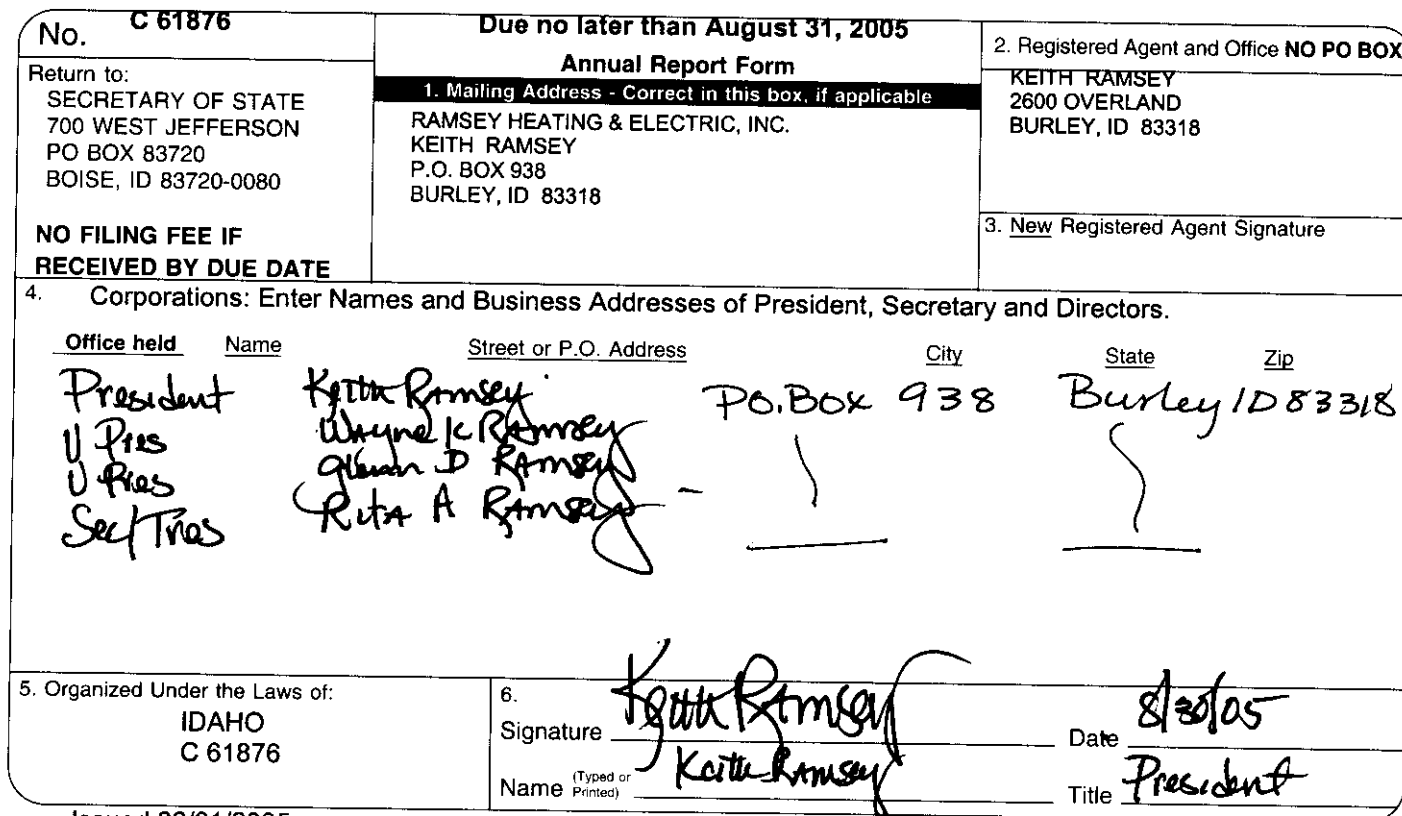 No. C 61876
Return to:
SECRETARY OF STATE
700 WEST JEFFERSON
PO BOX 83720
BOISE, ID 83720-0080
NO FILING FEE IF
RECEIVED BY DUE DATE
Due no later than August 31, 2005
Annual Report Form
1. Mailing Address - Correct in this box, if applicable
RAMSEY HEATING & ELECTRIC, INC.
KEITH RAMSEY
P.O. BOX 938
BURLEY, ID 83318
2. Registered Agent and Office NO PO BOX
KEITH RAMSEY
2600 OVERLAND
BURLEY, ID 83318
3. New Registered Agent Signature
4. Corporations: Enter Names and Business Addresses of President, Secretary and Directors.
Office held Name Street or P.O. Address City State Zip
President Keith Ramsey PO.Box 938 Burley ID 83318
V Pres Wayne K Ramsey
V Pres Glenn D Ramsey
Sec/Tres Rita A Ramsey -
5. Organized Under the Laws of:
IDAHO
C 61876
6.
Signature Keith Ramsey Date 8/30/05
Name (Typed or Printed) Keith Ramsey Title President